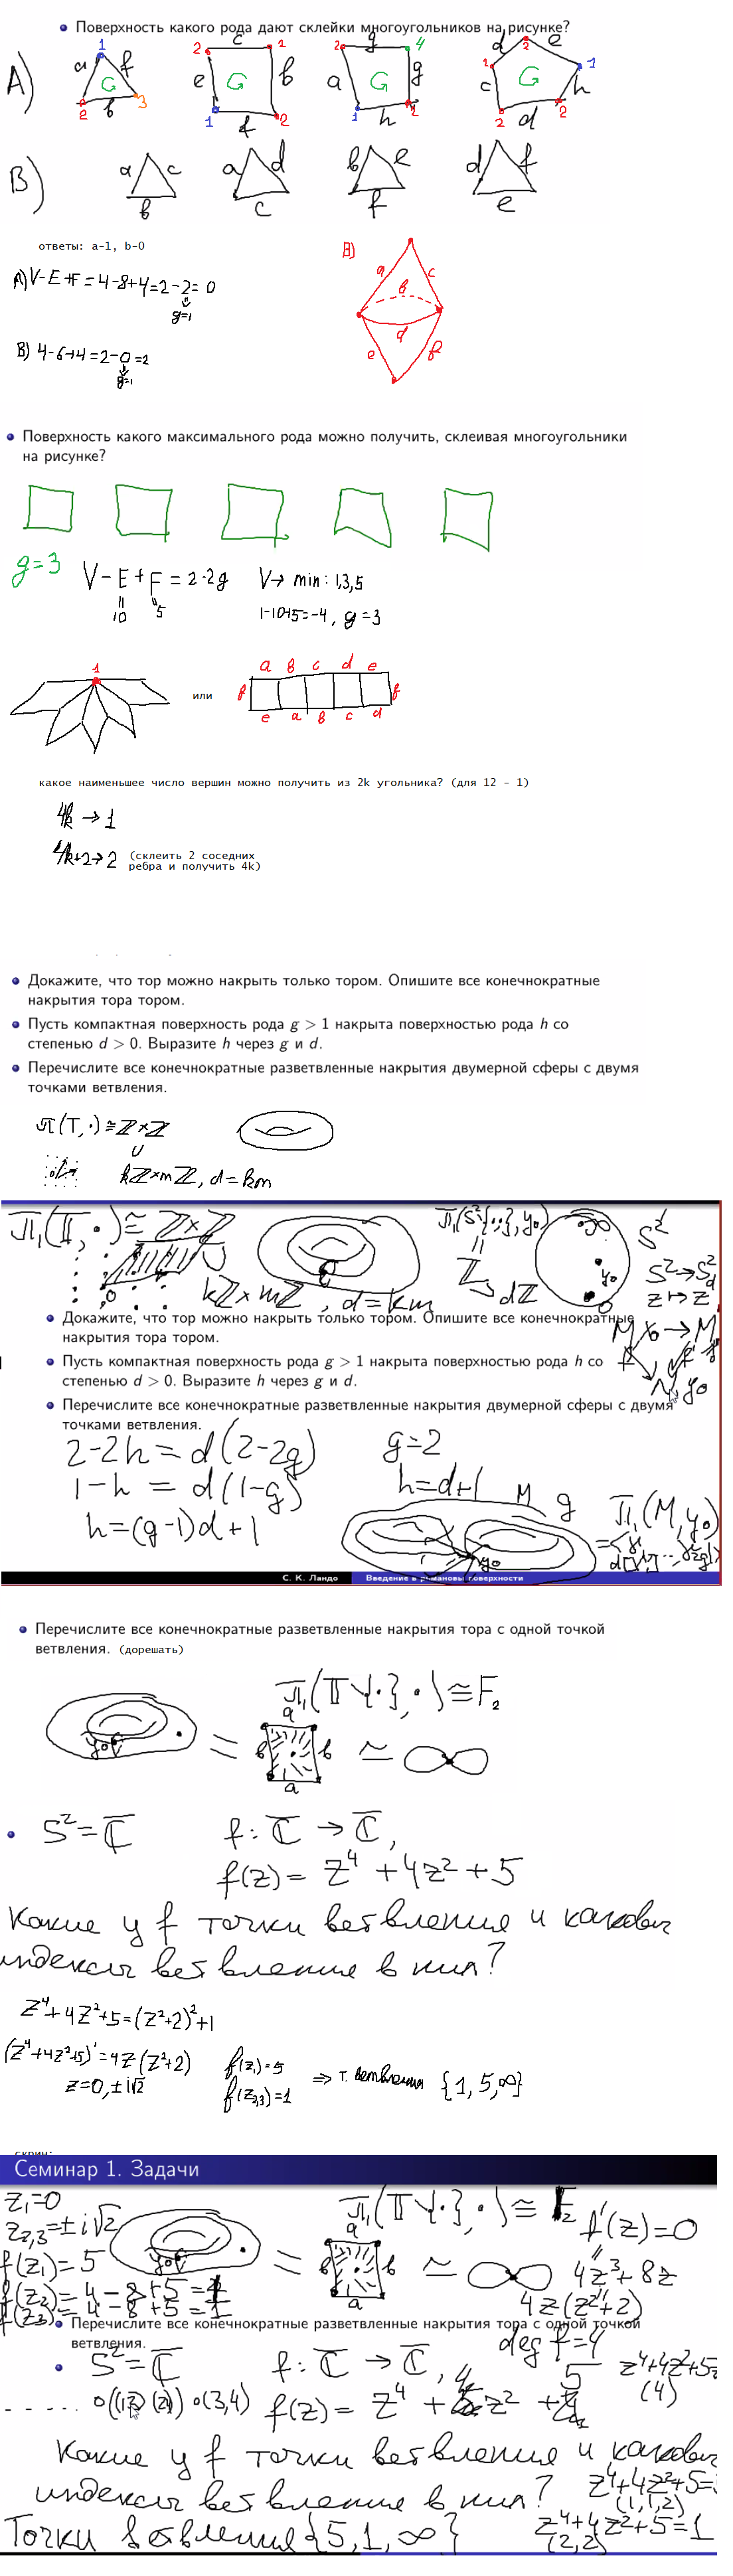 Поверхность какого рода дают склейки многоугольников на рисунке?
A)
a f b 1 2 3 G
c e b f 2 1 1 2 G
g a g h 2 4 1 2 G
d e c h d 1 2 1 2 2 G
B)
a c b
a d c
b e f
d f e
ответы: a-1, b-0
A) V-E+F=4-8+4=2-2=0
g=1
B) 4-6+4=2-0=2
g=1
B)
a c
b
d
e f
Поверхность какого максимального рода можно получить, склеивая многоугольники
на рисунке?
g=3
V-E+F=2-2g
10 5
V→ min: 1,3,5
1-10+5=-4, g=3
1
или
a b c d e
f f
e a b c d
какое наименьшее число вершин можно получить из 2k угольника? (для 12 - 1)
4k → 1
4k+2→2
(склеить 2 соседних
ребра и получить 4k)
Докажите, что тор можно накрыть только тором. Опишите все конечнократные
накрытия тора тором.
Пусть компактная поверхность рода g > 1 накрыта поверхностью рода h со
степенью d > 0. Выразите h через g и d.
Перечислите все конечнократные разветвленные накрытия двумерной сферы с двумя
точками ветвления.
π(T,·)≅ℤ×ℤ
∪
kℤ×mℤ, d=km
π₁(T,·)≅ℤ×ℤ
kℤ×mℤ, d=km
ℤ
dℤ
y₀
S²
S²→S²
Докажите, что тор можно накрыть только тором. Опишите все конечнократные
накрытия тора тором.
Пусть компактная поверхность рода g > 1 накрыта поверхностью рода h со
степенью d > 0. Выразите h через g и d.
Перечислите все конечнократные разветвленные накрытия двумерной сферы с двумя
точками ветвления.
2-2h = d(2-2g)
1-h = d(1-g)
h=(g-1)d+1
g=2
h=d+1
M g
π₁(M,y₀)
y₀
С. К. Ландо
Введение в римановы поверхности
Перечислите все конечнократные разветвленные накрытия тора с одной точкой
ветвления. (дорешать)
π₁(T\{·},·)≅F₂
y₀
=
a
b b
a
≃
S²=ℂ̄
f: ℂ̄ → ℂ̄,
f(z)= z⁴+4z²+5
Какие у f точки ветвления и каковы
индексы ветвление в них?
z⁴+4z²+5=(z²+2)²+1
(z⁴+4z²+5)'=4z(z²+2)
z=0,±i√2
f(z₁)=5
f(z₂,₃)=1
⇒ т. ветвления {1,5,∞}
скрин:
Семинар 1. Задачи
z₁=0
z₂,₃=±i√2
f(z₁)=5
f(z₂)=4-8+5=1
f(z₃)=4-8+5=1
y₀
=
a
b b
a
≃
π₁(T\{·},·)≅F₂
f'(z)=0
4z³+8z
4z(z²+2)
deg f=4
Перечислите все конечнократные разветвленные накрытия тора с одной точкой
ветвления.
S²=ℂ̄
f: ℂ̄ → ℂ̄,
z⁴+4z²+5=
(4)
f(z)= z⁴+
Какие у f точки ветвления и каковы
индексы ветвление в них?
z⁴+4z²+5=
(1,1,2)
z⁴+4z²+5=1
(2,2)
Точки ветвления {5,1,∞}